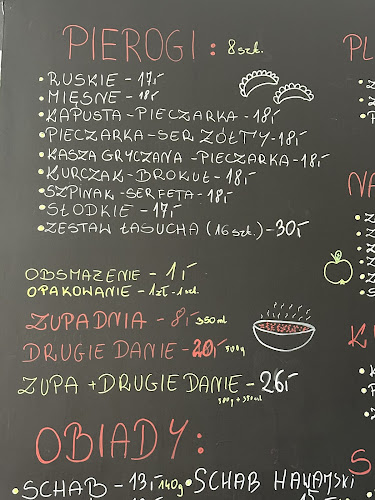 PIEROGI: 8szt.
• RUSKIE - 17,-
• MIĘSNE - 18,-
• KAPUSTA - PIECZARKA - 18,-
• PIECZARKA - SER ŻÓŁTY - 18,-
• KASZA GRYCZANA - PIECZARKA - 18,-
• KURCZAK - BROKUŁ - 18,-
• SZPINAK - SER FETA - 18,-
• SŁODKIE - 17,-
• ZESTAW ŁASUCHA (16 szt.) - 30,-
ODSMAŻENIE - 1,-
OPAKOWANIE - 1zł - 1szt.
ZUPA DNIA - 8,- 350ml
DRUGIE DANIE - 20,- 500g
ZUPA + DRUGIE DANIE - 26,-
500g + 350ml
OBIADY:
• SCHAB - 13,- 140g • SCHAB HAWAJSKI
PL
NA
K
S